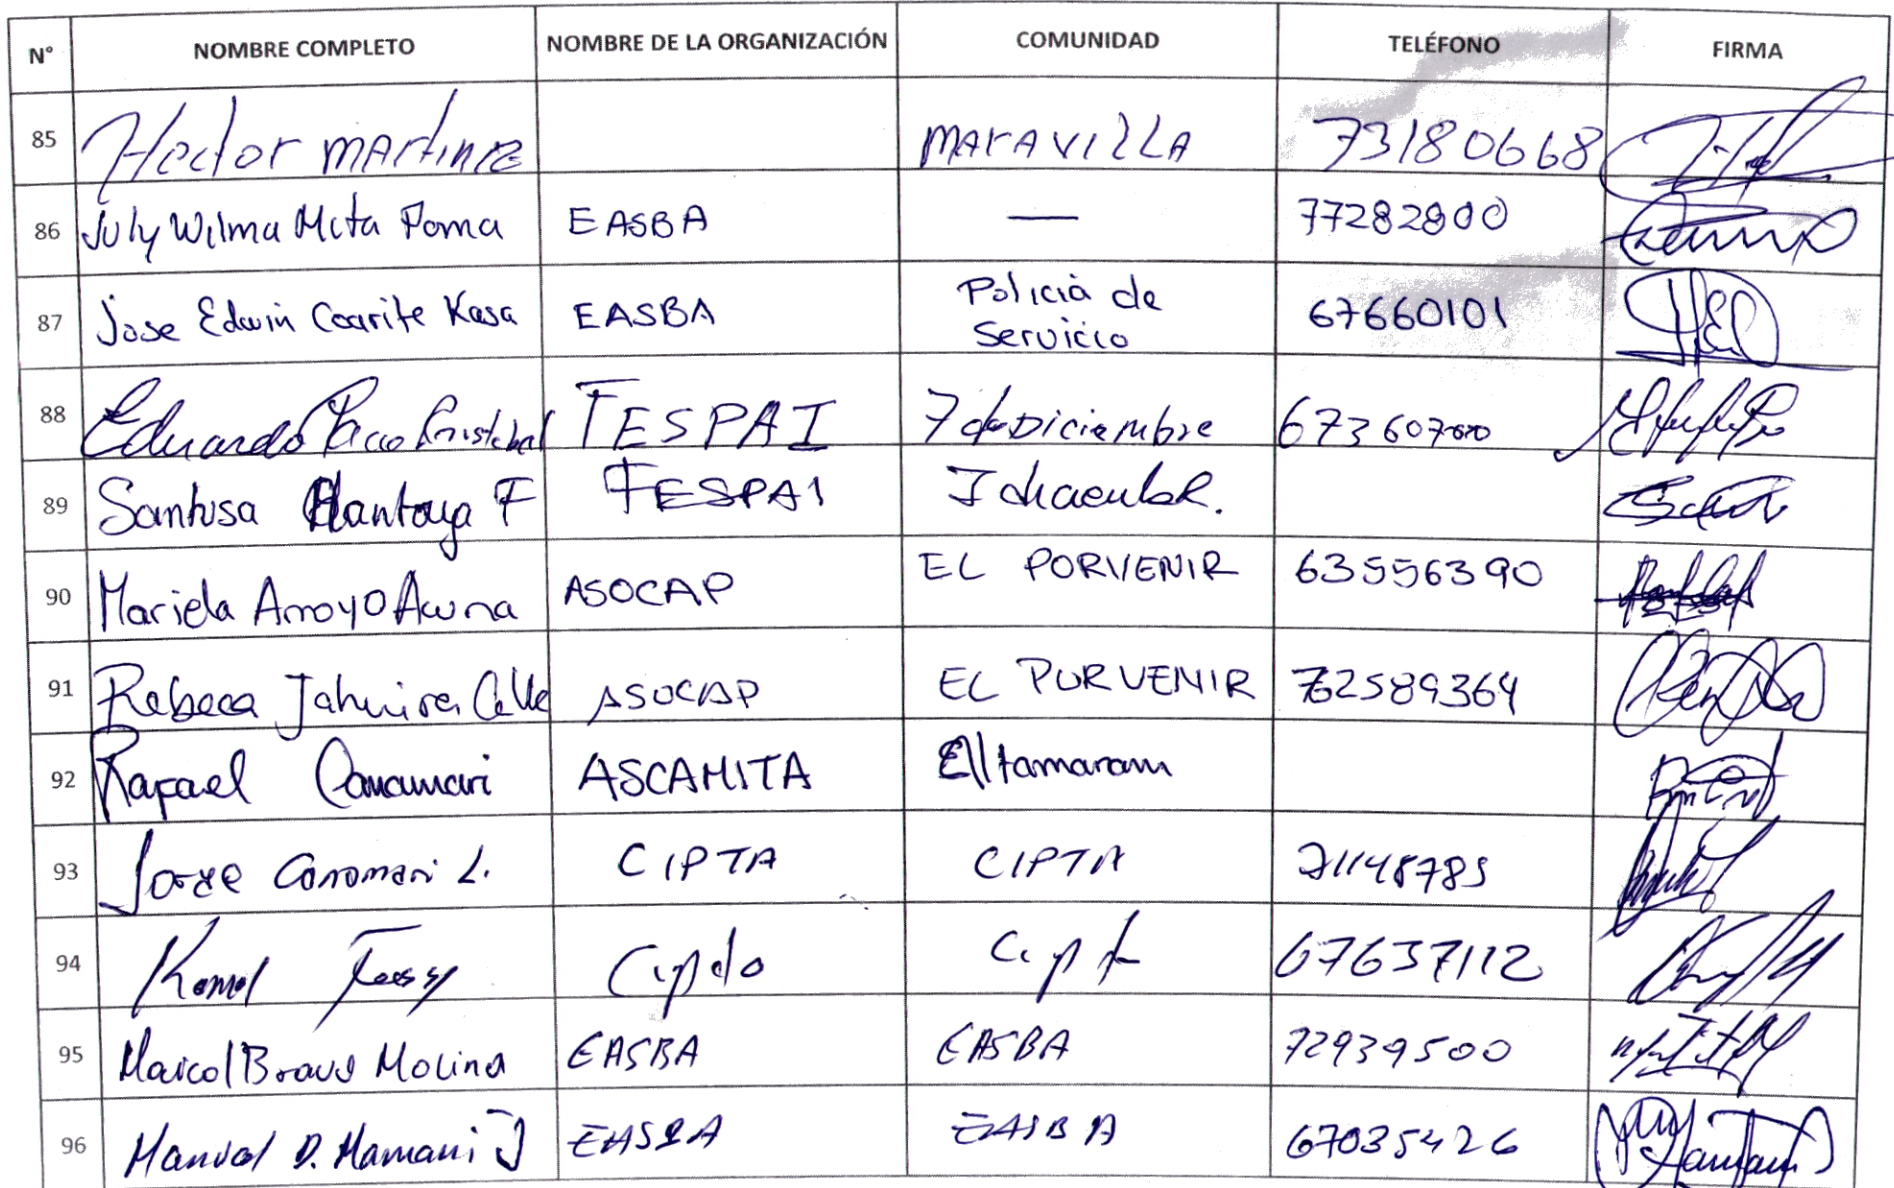 N° NOMBRE COMPLETO NOMBRE DE LA ORGANIZACIÓN COMUNIDAD TELÉFONO FIRMA
85 Hector martinez MARAVILLA 73180668
86 July Wilma Mita Poma EASBA — 77282800
87 Jose Edwin Coarite Kasa EASBA Policia de Servicio 67660101
88 Eduardo Cristobal FESPAI 7 de Diciembre
89 Santusa Mantoya F FESPAI
90 Mariela Arroyo Acuna ASOCAP EL PORVENIR 63556390
91 Rebeca Jahuira Calle ASOCAP EL PORVENIR 72589364
92 Rafael Canamari ASCAMITA
93 Jorge Canamari L. CIPTA CIPTA 71148785
94 67637112
95 Marcol Bravo Molina EASBA EASBA 72939500
96 Manuel D. Mamani J EASBA EASBA 67035426